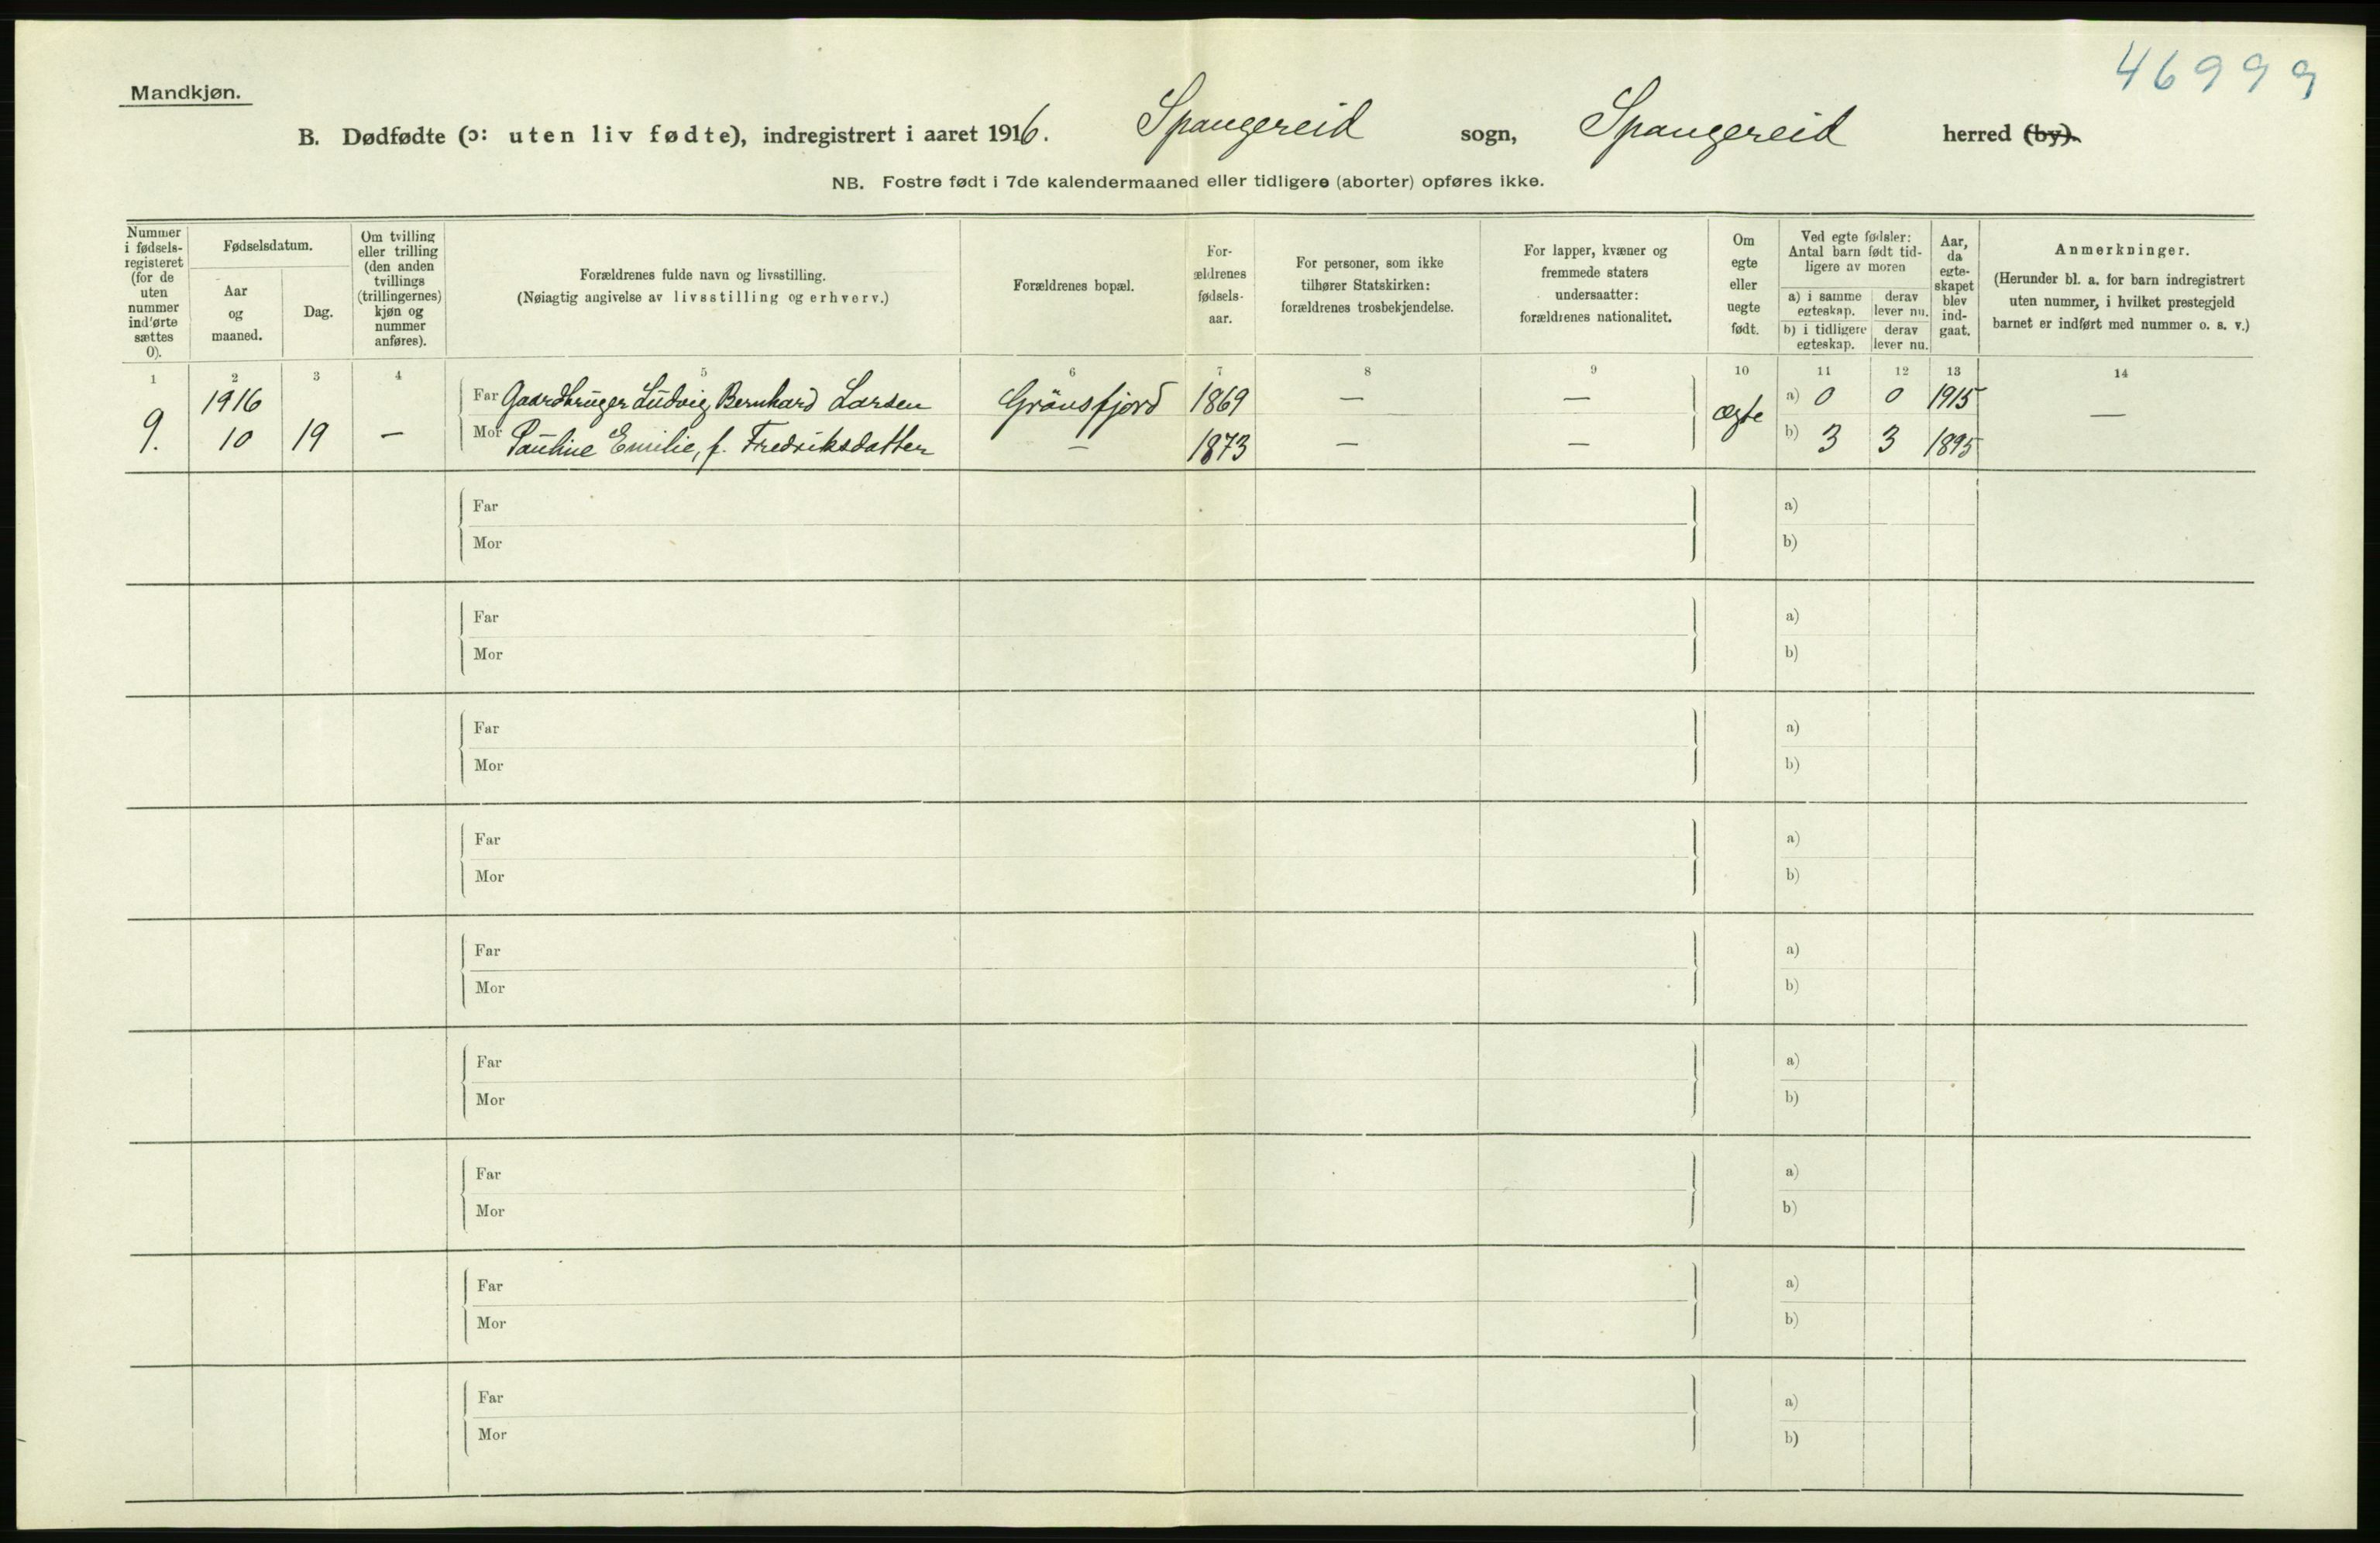 46999
Mandkjøn.
B. Dødfødte (ɔ: uten liv fødte), indregistrert i aaret 1916. Spangereid sogn, Spangereid herred (by).
NB. Fostre født i 7de kalendermaaned eller tidligere (aborter) opføres ikke.
Nummer
i fødsels-
registeret
(for de
uten
nummer
indførte
sættes
0).
Fødselsdatum.
Aar
og
maaned.
Dag.
Om tvilling
eller trilling
(den anden
tvillings
(trillingernes)
kjøn og
nummer
anføres).
Forældrenes fulde navn og livsstilling.
(Nøiagtig angivelse av livsstilling og erhverv.)
Forældrenes bopæl.
For-
ældrenes
fødsels-
aar.
For personer, som ikke
tilhører Statskirken:
forældrenes trosbekjendelse.
For lapper, kvæner og
fremmede staters
undersaatter:
forældrenes nationalitet.
Om
egte
eller
uegte
født.
Ved egte fødsler:
Antal barn født tid-
ligere av moren
a) i samme
egteskap.
derav
lever nu.
b) i tidligere
egteskap.
derav
lever nu.
Aar,
da
egte-
skapet
blev
ind-
gaat.
Anmerkninger.
(Herunder bl. a. for barn indregistrert
uten nummer, i hvilket prestegjeld
barnet er indført med nummer o. s. v.)
1 2 3 4 5 6 7 8 9 10 11 12 13 14
1916 Far Gaardbruger Ludvig Bernhard Larsen Grönsfjord 1869 — — Ægte a) 0 0 1915 —
9. 10 19 — Mor Pauline Emilie, f. Fredriksdatter — 1873 — — b) 3 3 1895
Far a)
Mor b)
Far a)
Mor b)
Far a)
Mor b)
Far a)
Mor b)
Far a)
Mor b)
Far a)
Mor b)
Far a)
Mor b)
Far a)
Mor b)
Far a)
Mor b)